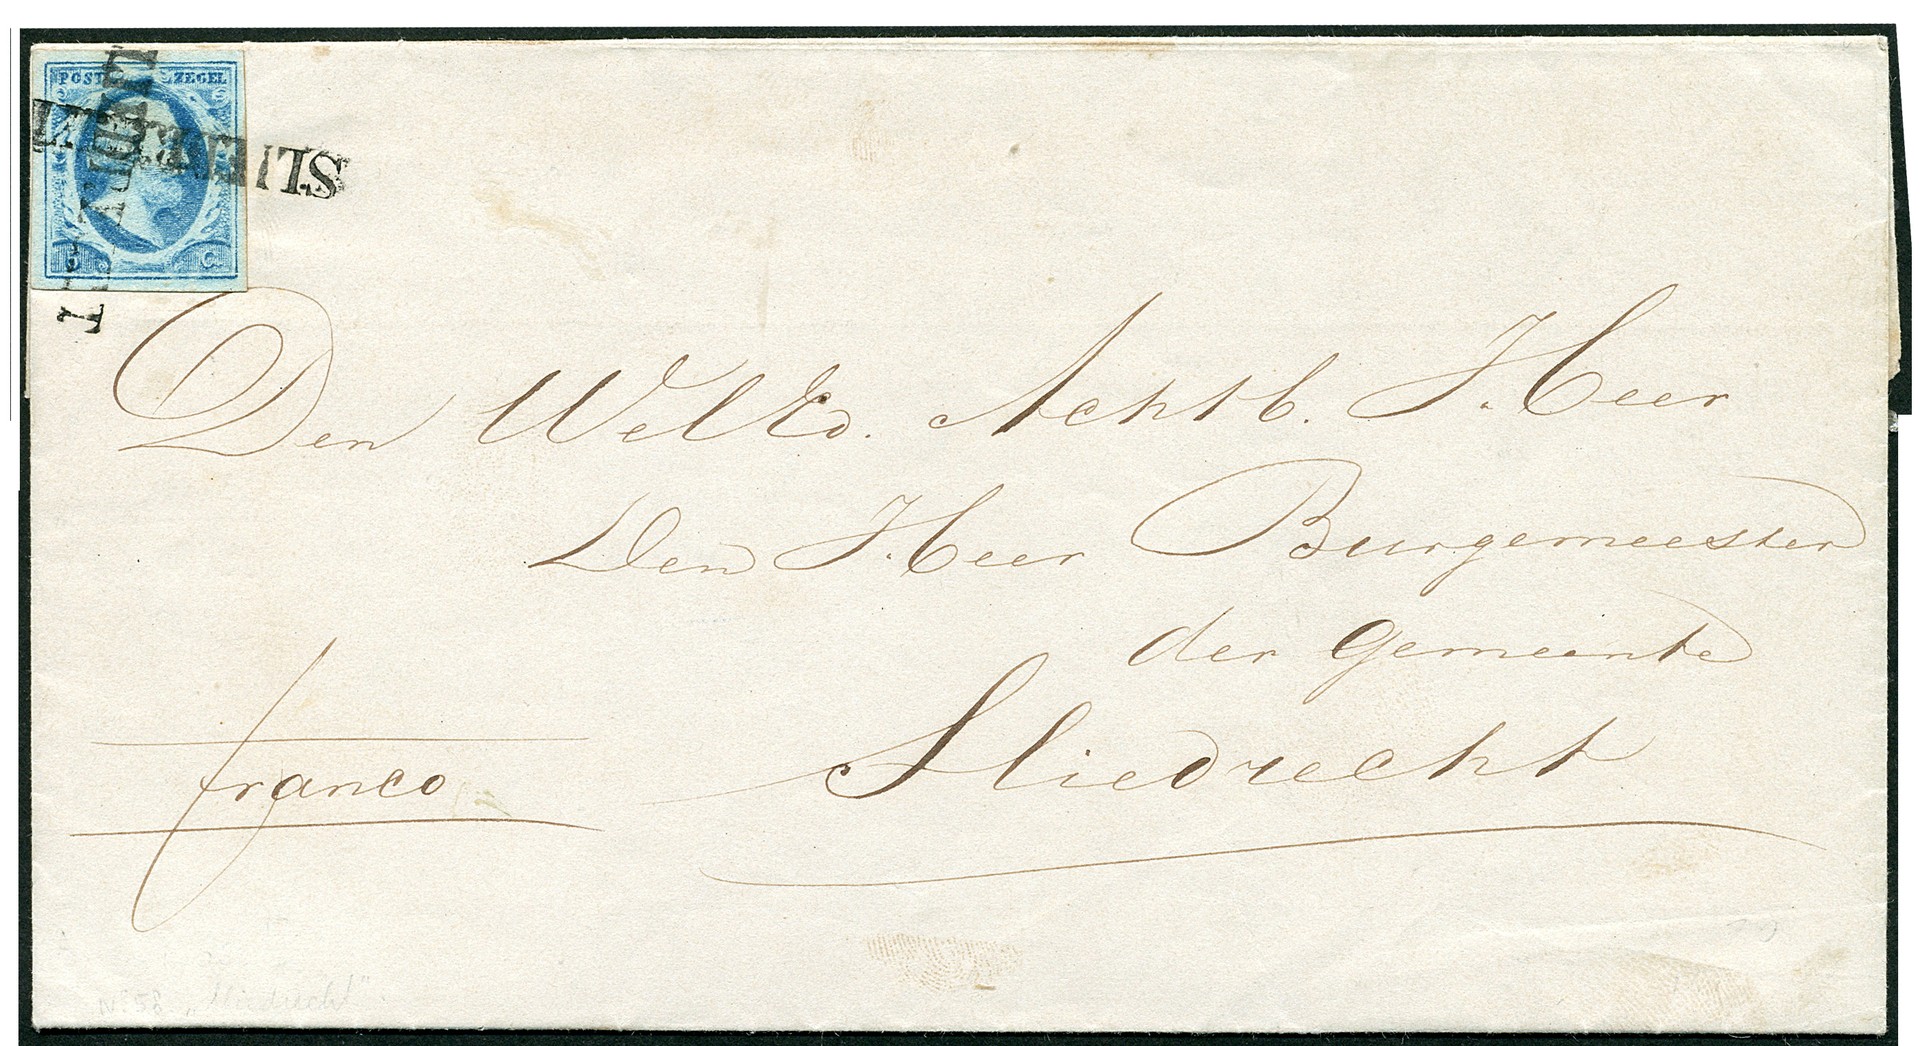 POST ZEGEL
5 C.
Den WelEd. Achtb. Heer
Den Heer Burgemeester
der gemeente
Sliedrecht
franco
No 58 „Sliedrecht"